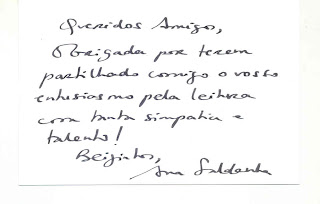 Queridos Amigos,
Obrigada por terem
partilhado comigo o vosso
entusiasmo pela leitura
com tanta simpatia e
talento!
Beijinhos,
Ana Saldanha